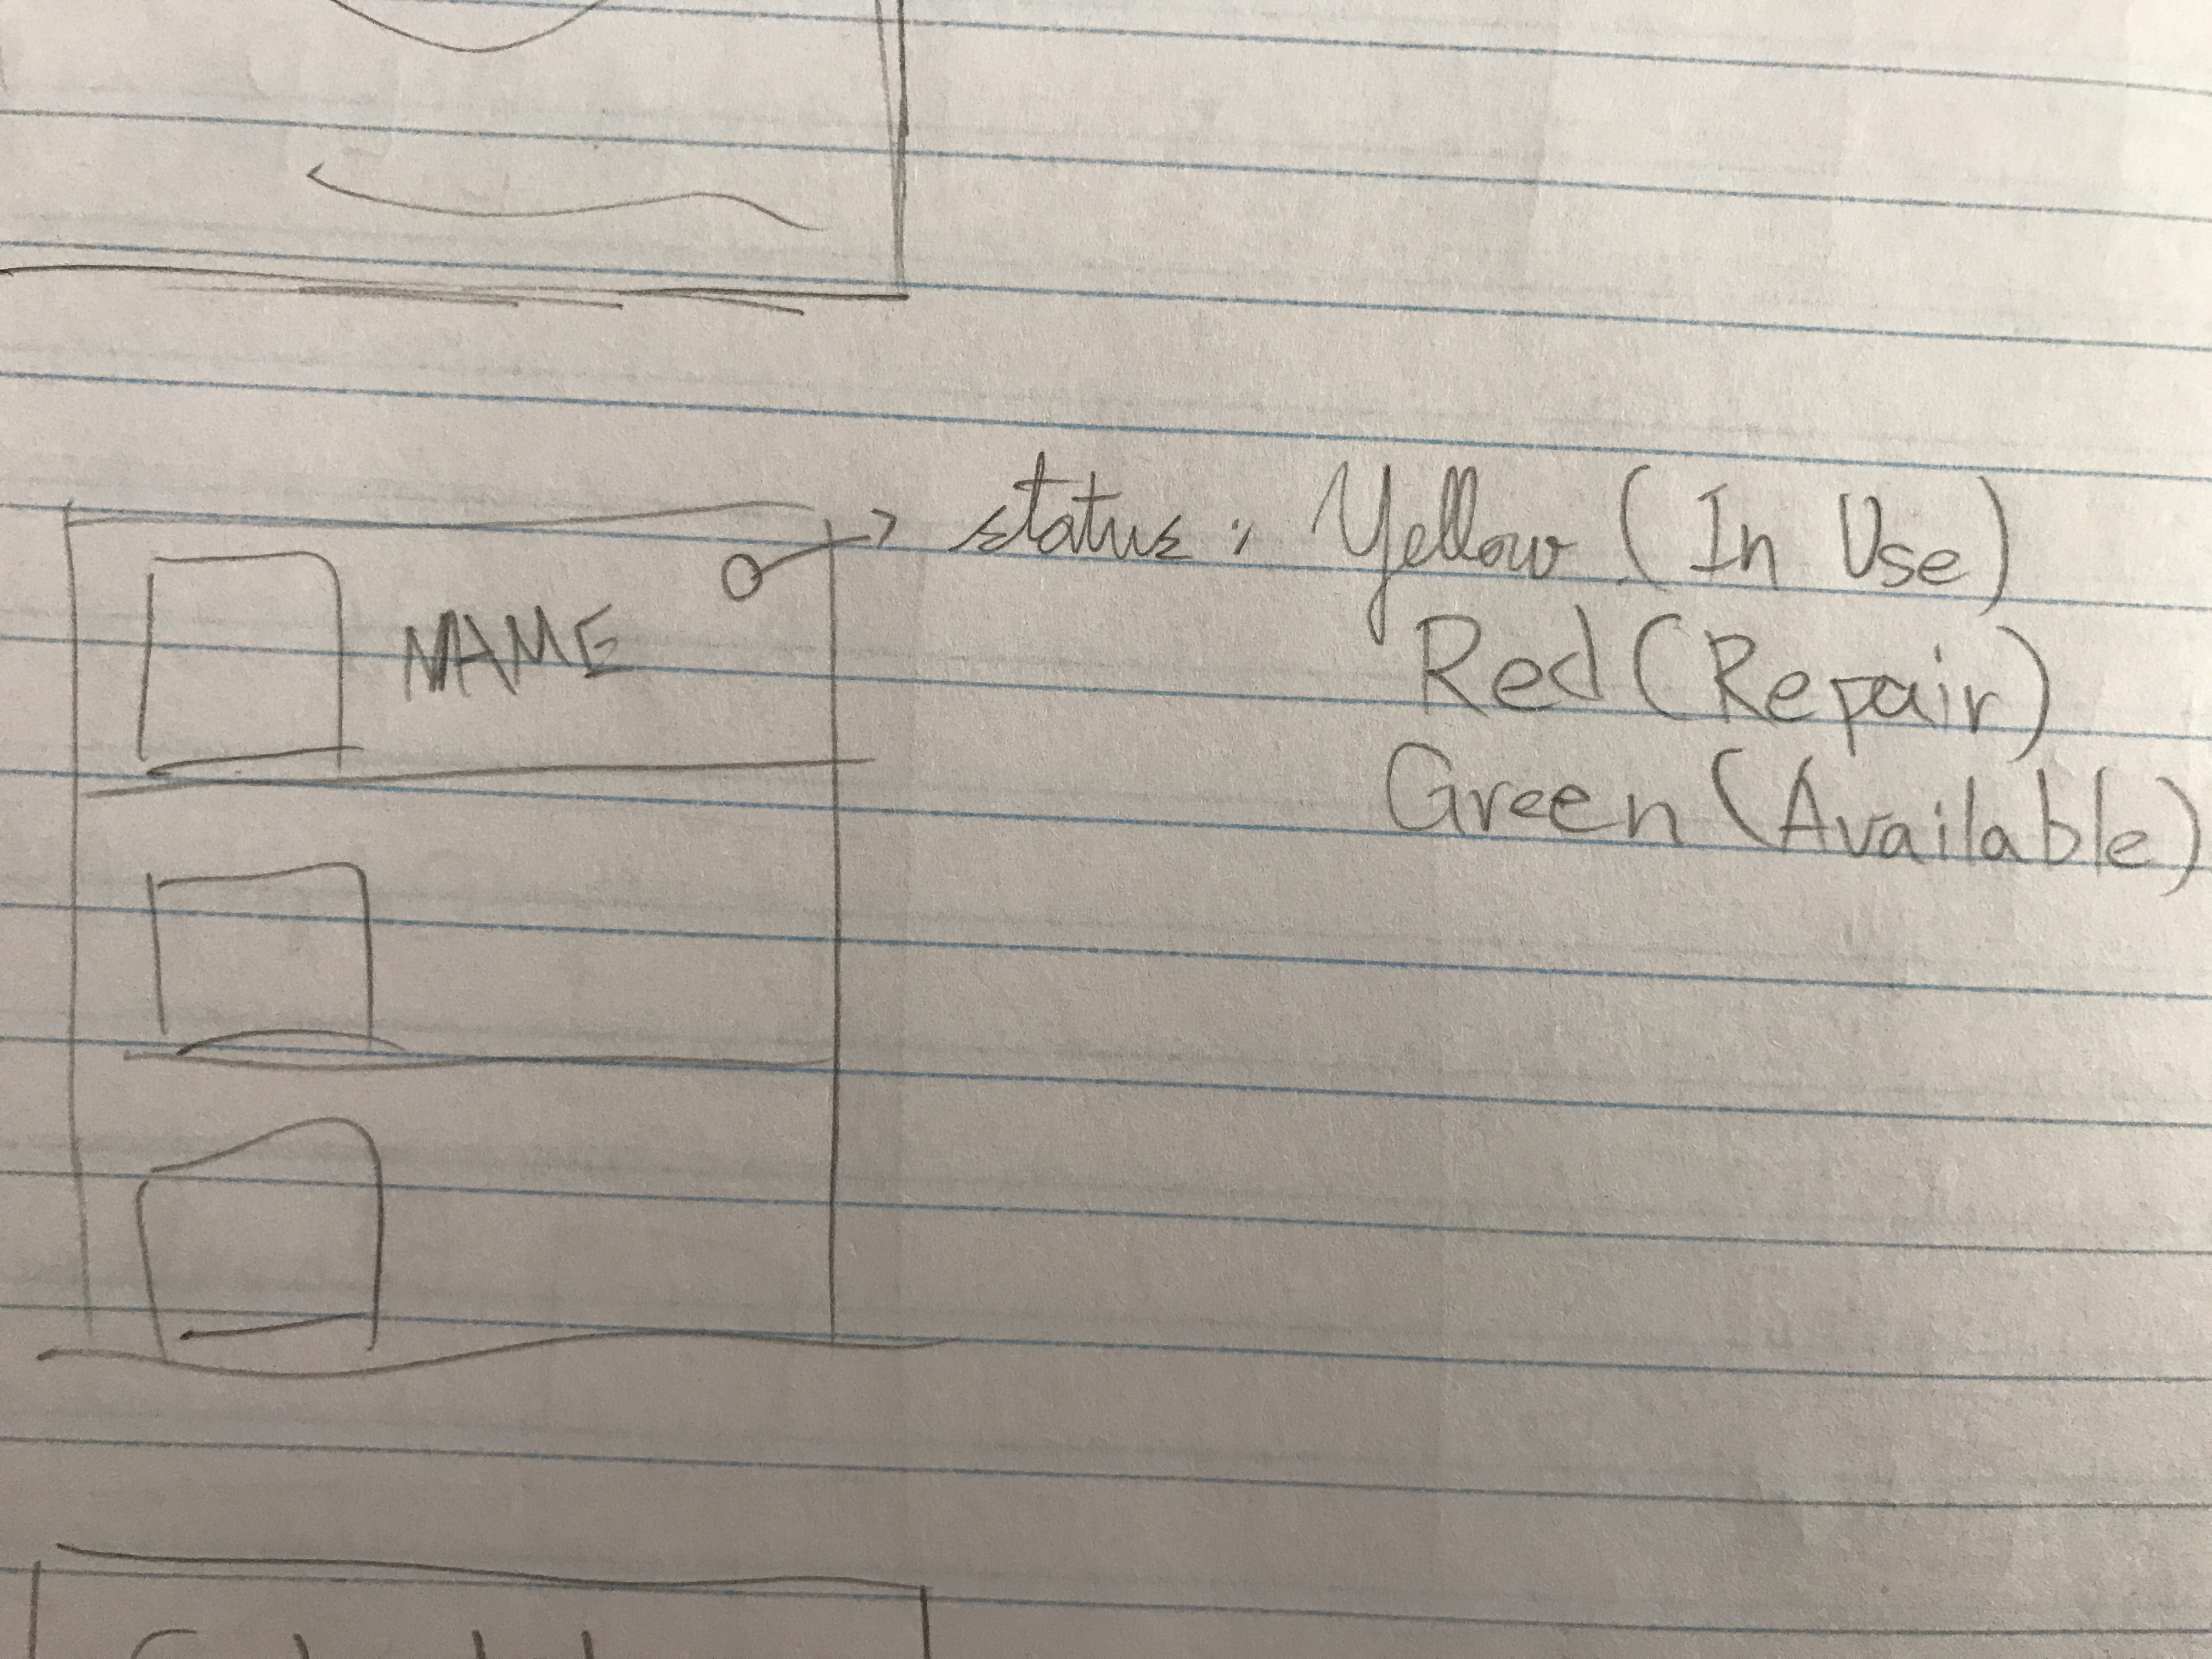 NAME
status: Yellow (In Use)
Red (Repair)
Green (Available)